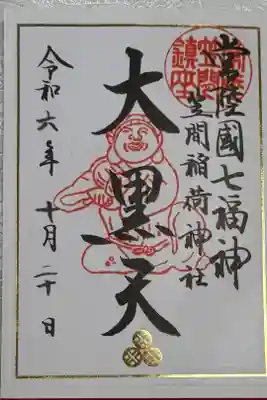 常陸國七福神
笠間稲荷神社
大黒天
令和六年 十月 二十日